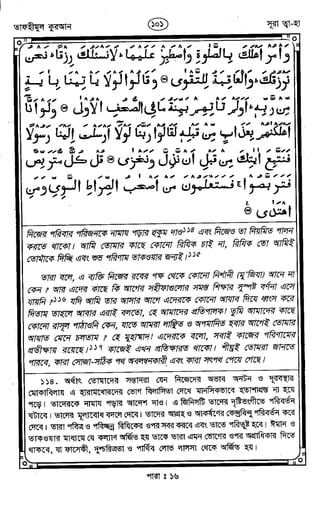 তাফহীমুল কুরআন
১০১
সূরা ত্বা-হা
وَأْمُرْ أَهْلَكَ بِالصَّلٰوةِ وَاصْطَبِرْ عَلَيْهَا ۚ لَا نَسْئَلُكَ رِزْقًا ۚ نَحْنُ
نَرْزُقُكَ ۚ وَالْعَاقِبَةُ لِلتَّقْوٰى ⊙ وَقَالُوْا لَوْلَا يَأْتِيْنَا بِاٰيَةٍ
مِّنْ رَّبِّهٖ ۚ أَوَلَمْ تَأْتِهِمْ بَيِّنَةُ مَا فِى الصُّحُفِ الْاُوْلٰى ⊙ وَلَوْ أَنَّا
أَهْلَكْنٰهُمْ بِعَذَابٍ مِّنْ قَبْلِهٖ لَقَالُوْا رَبَّنَا لَوْلَا أَرْسَلْتَ إِلَيْنَا رَسُوْلًا
فَنَتَّبِعَ اٰيٰتِكَ مِنْ قَبْلِ أَنْ نَّذِلَّ وَنَخْزٰى ⊙ قُلْ كُلٌّ مُّتَرَبِّصٌ
فَتَرَبَّصُوْا ۚ فَسَتَعْلَمُوْنَ مَنْ أَصْحٰبُ الصِّرَاطِ السَّوِىِّ وَمَنِ
اهْتَدٰى ⊙
নিজের পরিবার পরিজনকে নামায পড়ার হুকুম দাও১১৪ এবং নিজেও তা নিয়মিত পালন
করতে থাকো। আমি তোমার কাছে কোনো রিযিক চাই না, রিযিক তো আমিই
তোমাকে দিচ্ছি এবং শুভ পরিণাম তাকওয়ার জন্যই।১১৫
তারা বলে, এ ব্যক্তি নিজের রবের পক্ষ থেকে কোনো নিশানী (মু'জিযা) আনে না
কেন? আর এদের কাছে কি আগের সহীফাগুলোর সমস্ত শিক্ষার সুস্পষ্ট বর্ণনা এসে
যায়নি?১১৬ যদি আমি তার আসার আগে এদেরকে কোনো আযাব দিয়ে ধ্বংস করে
দিতাম তাহলে আবার এরাই বলতো, হে আমাদের প্রতিপালক! তুমি আমাদের কাছে
কোনো রাসূল পাঠাওনি কেন, যাতে আমরা লাঞ্ছিত ও অপমানিত হবার আগেই তোমার
আয়াত মেনে চলতাম? হে মুহাম্মাদ! এদেরকে বলো, সবাই কাজের পরিণামের
প্রতীক্ষায় রয়েছে।১১৭ কাজেই এখন প্রতীক্ষারত থাকো। শীঘ্রই তোমরা জানতে
পারবে, কারা সোজা-সঠিক পথ অবলম্বনকারী এবং কারা সৎপথ পেয়ে গেছে।
১১৪. অর্থাৎ তোমাদের সন্তানরা যেন নিজেদের অভাব অনটন ও দুরবস্থার
মোকাবিলায় এ হারামখোরদের ভোগ বিলাসিতা দেখে মানসিকভাবে হতাশাগ্রস্ত না হয়ে
পড়ে। তাদেরকে নামায পড়ার আদেশ দাও। এ জিনিসটি তাদের দৃষ্টিভংগীতে পরিবর্তন
ঘটাবে। তাদের মূল্যবোধ বদলে দেবে। তাদের আগ্রহ ও আকর্ষণের কেন্দ্রবিন্দু পরিবর্তন করে
দেবে। তারা পবিত্র ও পরিচ্ছন্ন রিযিকের ওপর সবর করবে এবং তাতে পরিতুষ্ট হবে। ঈমান ও
তাকওয়ার মাধ্যমে যে কল্যাণ অর্জিত হয় তাকে তারা এমন ভোগের ওপর অগ্রাধিকার দিতে
থাকবে, যা ফাসেকী, দুশ্চরিত্রতা ও পার্থিব লোভ লালসা থেকে অর্জিত হয়।
পারা : ১৬